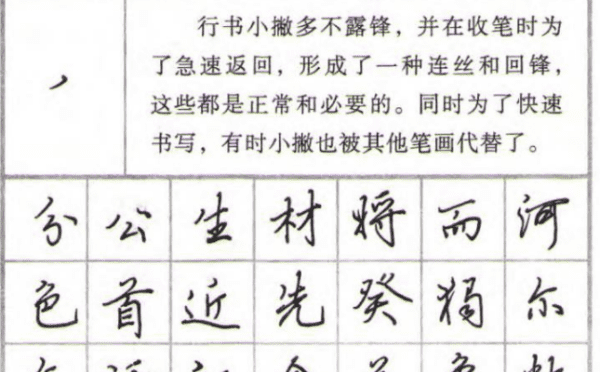 行书小撇多不露锋，并在收笔时为
了急速返回，形成了一种连丝和回锋，
这些都是正常和必要的。同时为了快速
书写，有时小撇也被其他笔画代替了。
分公生材将而河
色首近先癸獨尔